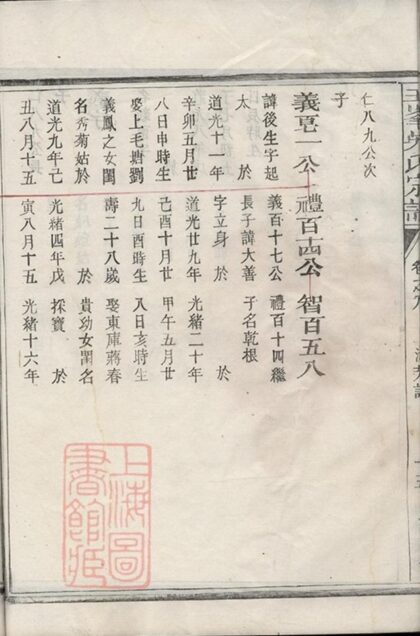 仁八九公次
子
義 一公 禮百十四公 智百五八
諱後生字起 義百十七公 禮百十四繼
太 於 長子諱大善 子名乾根
道光十一年 字立身 於 於
辛卯五月廿 道光廿九年 光緒二十年
八日申時生 己酉十月廿 甲午五月廿
娶上毛塘劉 九日酉時生 入日亥時生
義鳳之女閨 壽二十八歲 娶東庫蔣春
名秀菊姑於 於 貴幼女閨名
道光九年己 光緒四年戊 採寶 於
丑八月十五 寅八月十五 光緒十六年
上海圖
書館藏